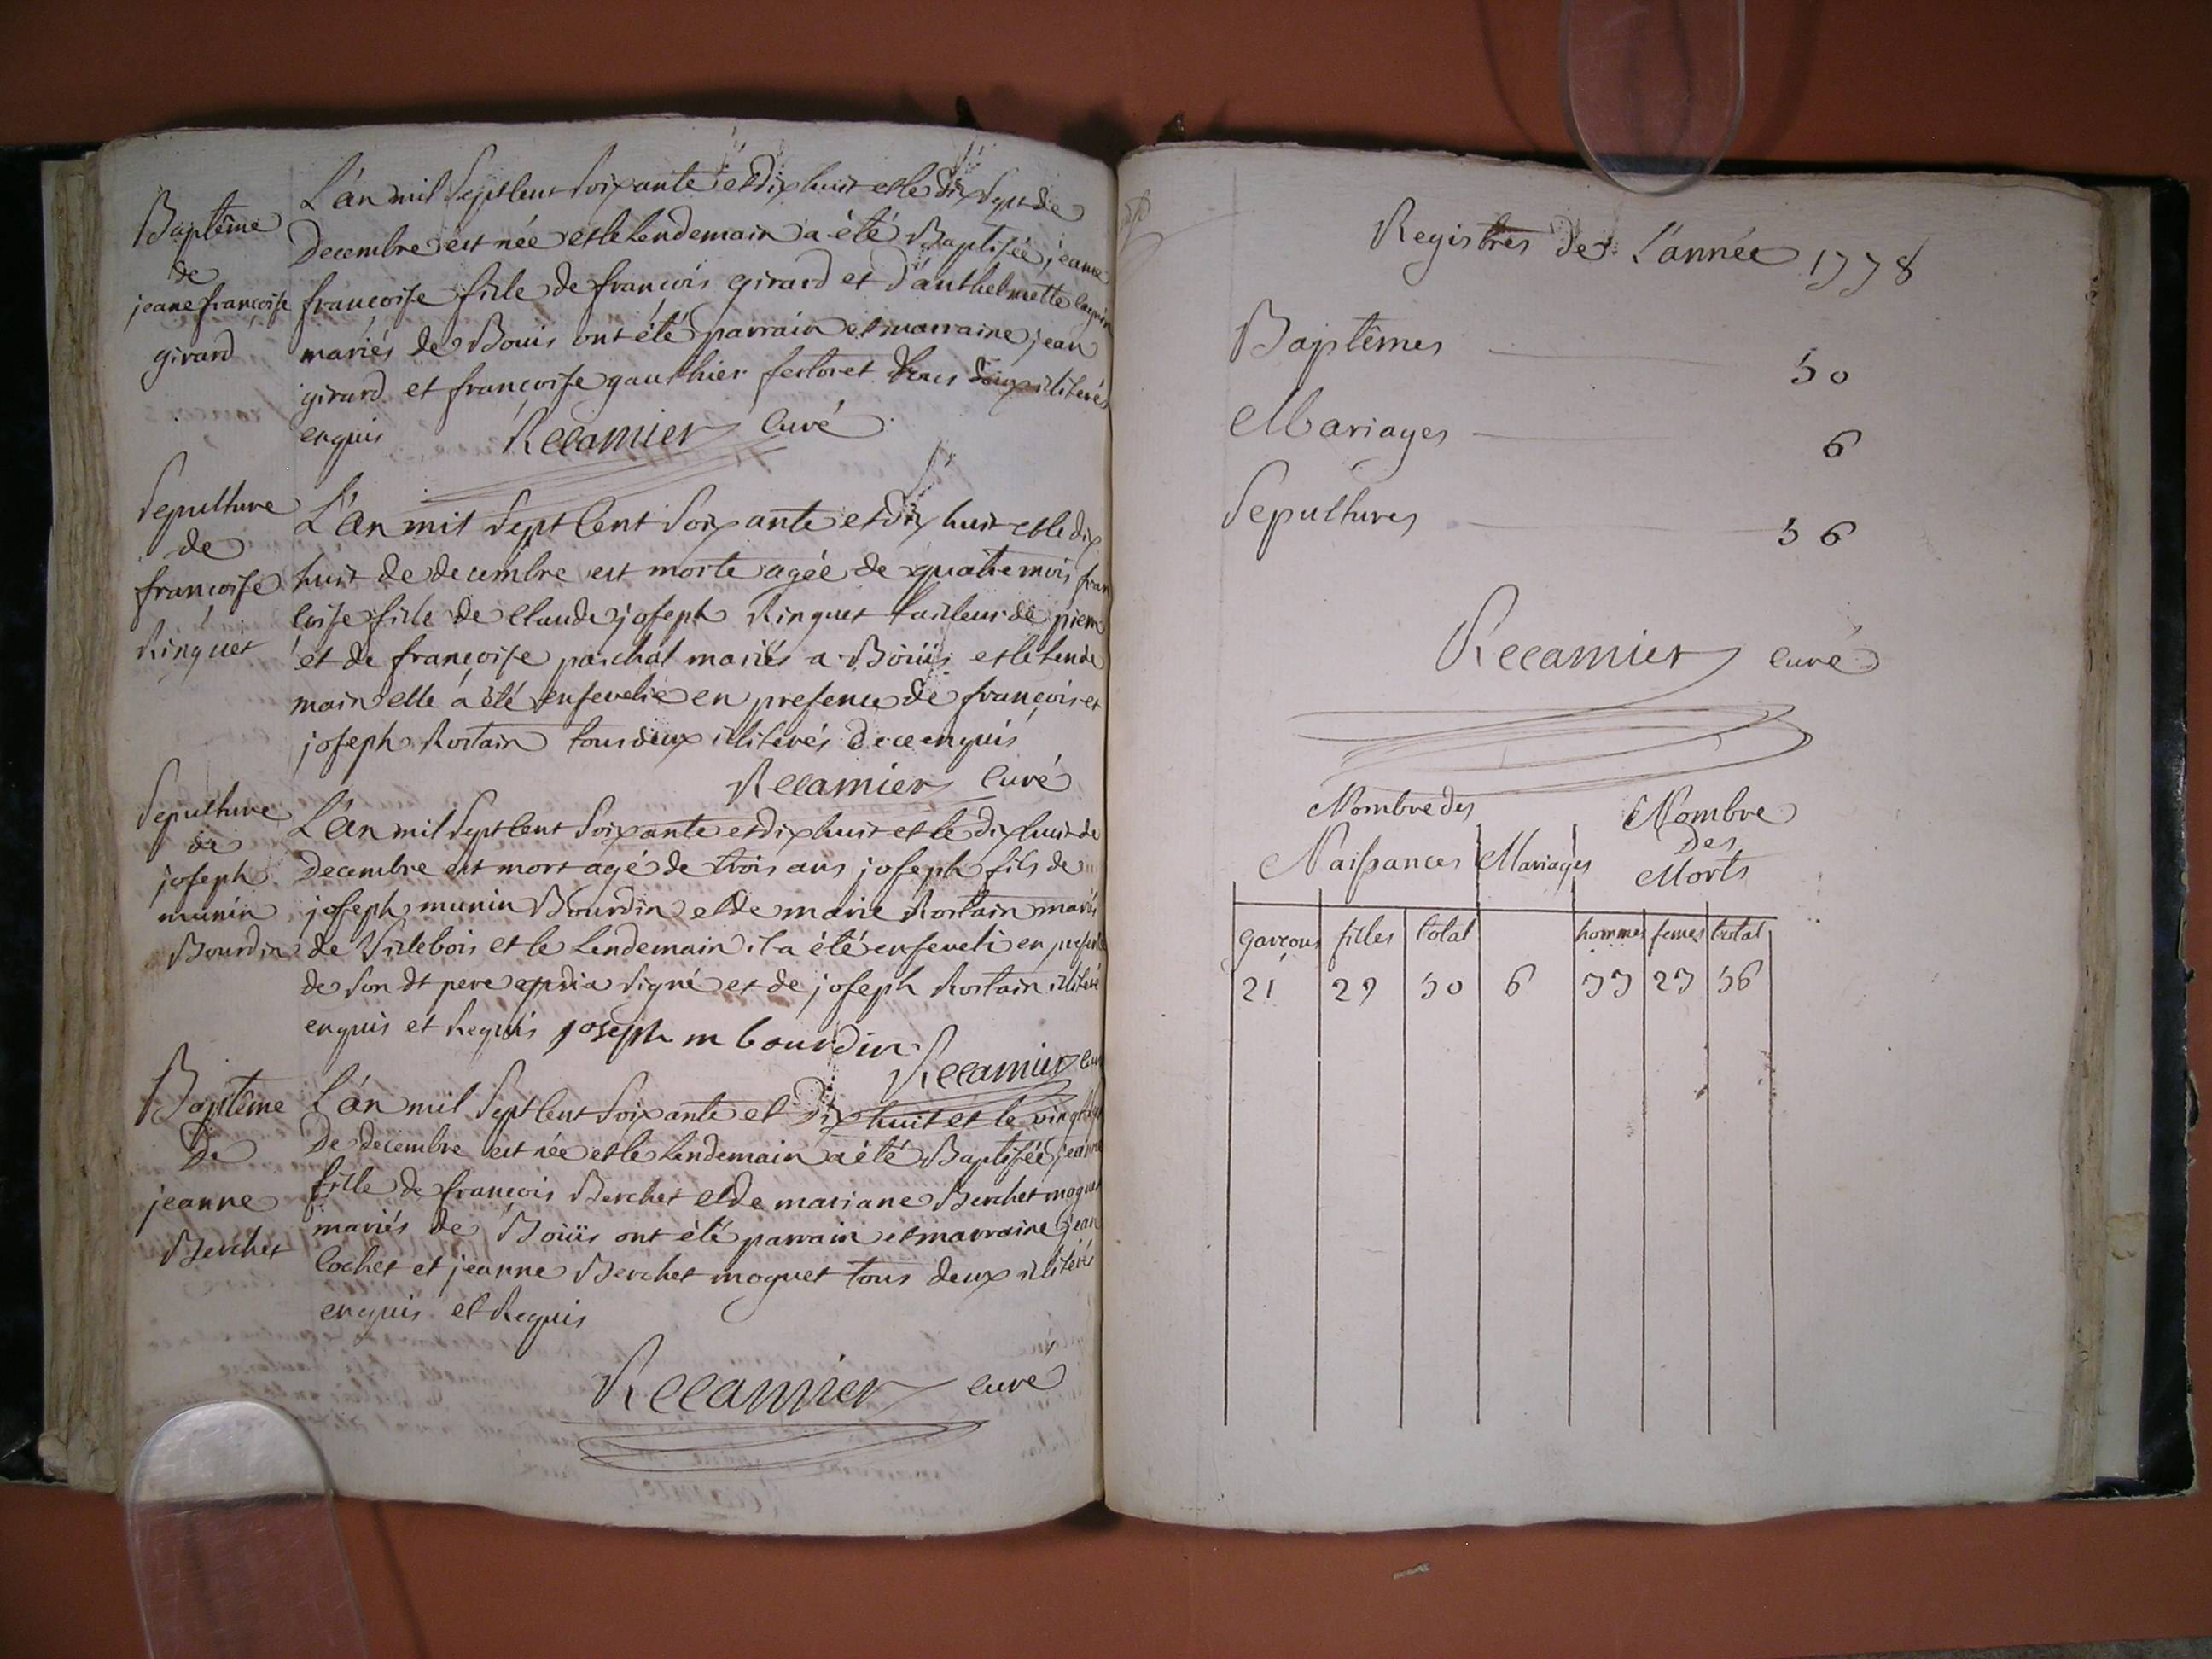 Baptême
de
jeane françoise
girard
L'an mil sept cent soixante et dix huit et le dix sept de
Decembre est née et le lendemain a été Baptisée jeanne
françoise fille de françois girard et d'anthelmette
mariés de Bouis ont été parrain et marraine jean
girard et françoise gauthier tous deux illiterés
enquis Récamier Curé
Sepulture
de
françoise
Ringuet
L'an mil sept cent soixante et dix huit et le dix
huit de decembre est morte agée de quatre mois fran
coise fille de Claude joseph Ringuet tailleur de pierre
et de françoise paschal mariés a Boüis et le lende
main elle a été ensevelie en presence de françois et
joseph Rostain tous deux illiterés de ce enquis
Récamier Curé
Sepulture
de
joseph
munin
Bourdin
L'an mil sept cent soixante et dix huit et le dix huit de
Decembre est mort agé de trois ans joseph fils de
joseph munin Bourdin et de marie Rostain mariés
de Villebois et le lendemain il a été enseveli en presence
de son dt pere qui a signé et de joseph Rostain illiteré
enquis et Requis joseph m bourdin
Récamier Cur
Baptême
De
jeanne
Berchet
L'an mil sept cent soixante et dix huit et le vingt
De decembre est née et le lendemain a été Baptisée jeanne
fille de françois Berchet et de mariane Berchet moguet
mariés de Boüis ont été parrain et marraine jean
Cochet et jeanne Berchet moguet tous deux illiterés
enquis et Requis
Récamier curé
Registres de L'année 1778
Baptêmes 50
Mariages 6
Sepultures 56
Récamier curé
Nombre des Nombre
Naissances Mariages Des
Morts
garçons filles total hommes femes total
21 29 50 6 33 23 56